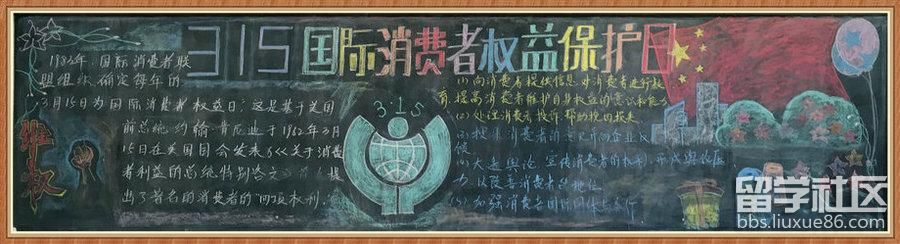 315国际消费者权益保护日
1983年,国际消费者联
盟组织确定每年的
3月15日为国际消费者权益日。这是基于美国
前总统约翰·肯尼迪于1962年3月
15日在美国国会发表《关于消费
者利益的总统特别咨文》
出了著名的消费者的"四项权利"
维权
3·15
(1)向消费者提供信息,对消费者进行教
育,提高消费者维护自身权益的意识和能力
(2)处理消费者投诉,帮助挽回损失
(3)搜集消费者的意见并向企业反
馈
(4)大造舆论,宣传消费者的权利,形成舆论压
力,以改善消费者的地位
(5)加强消费者国际团体合作
留学社区
bbs.liuxue86.com